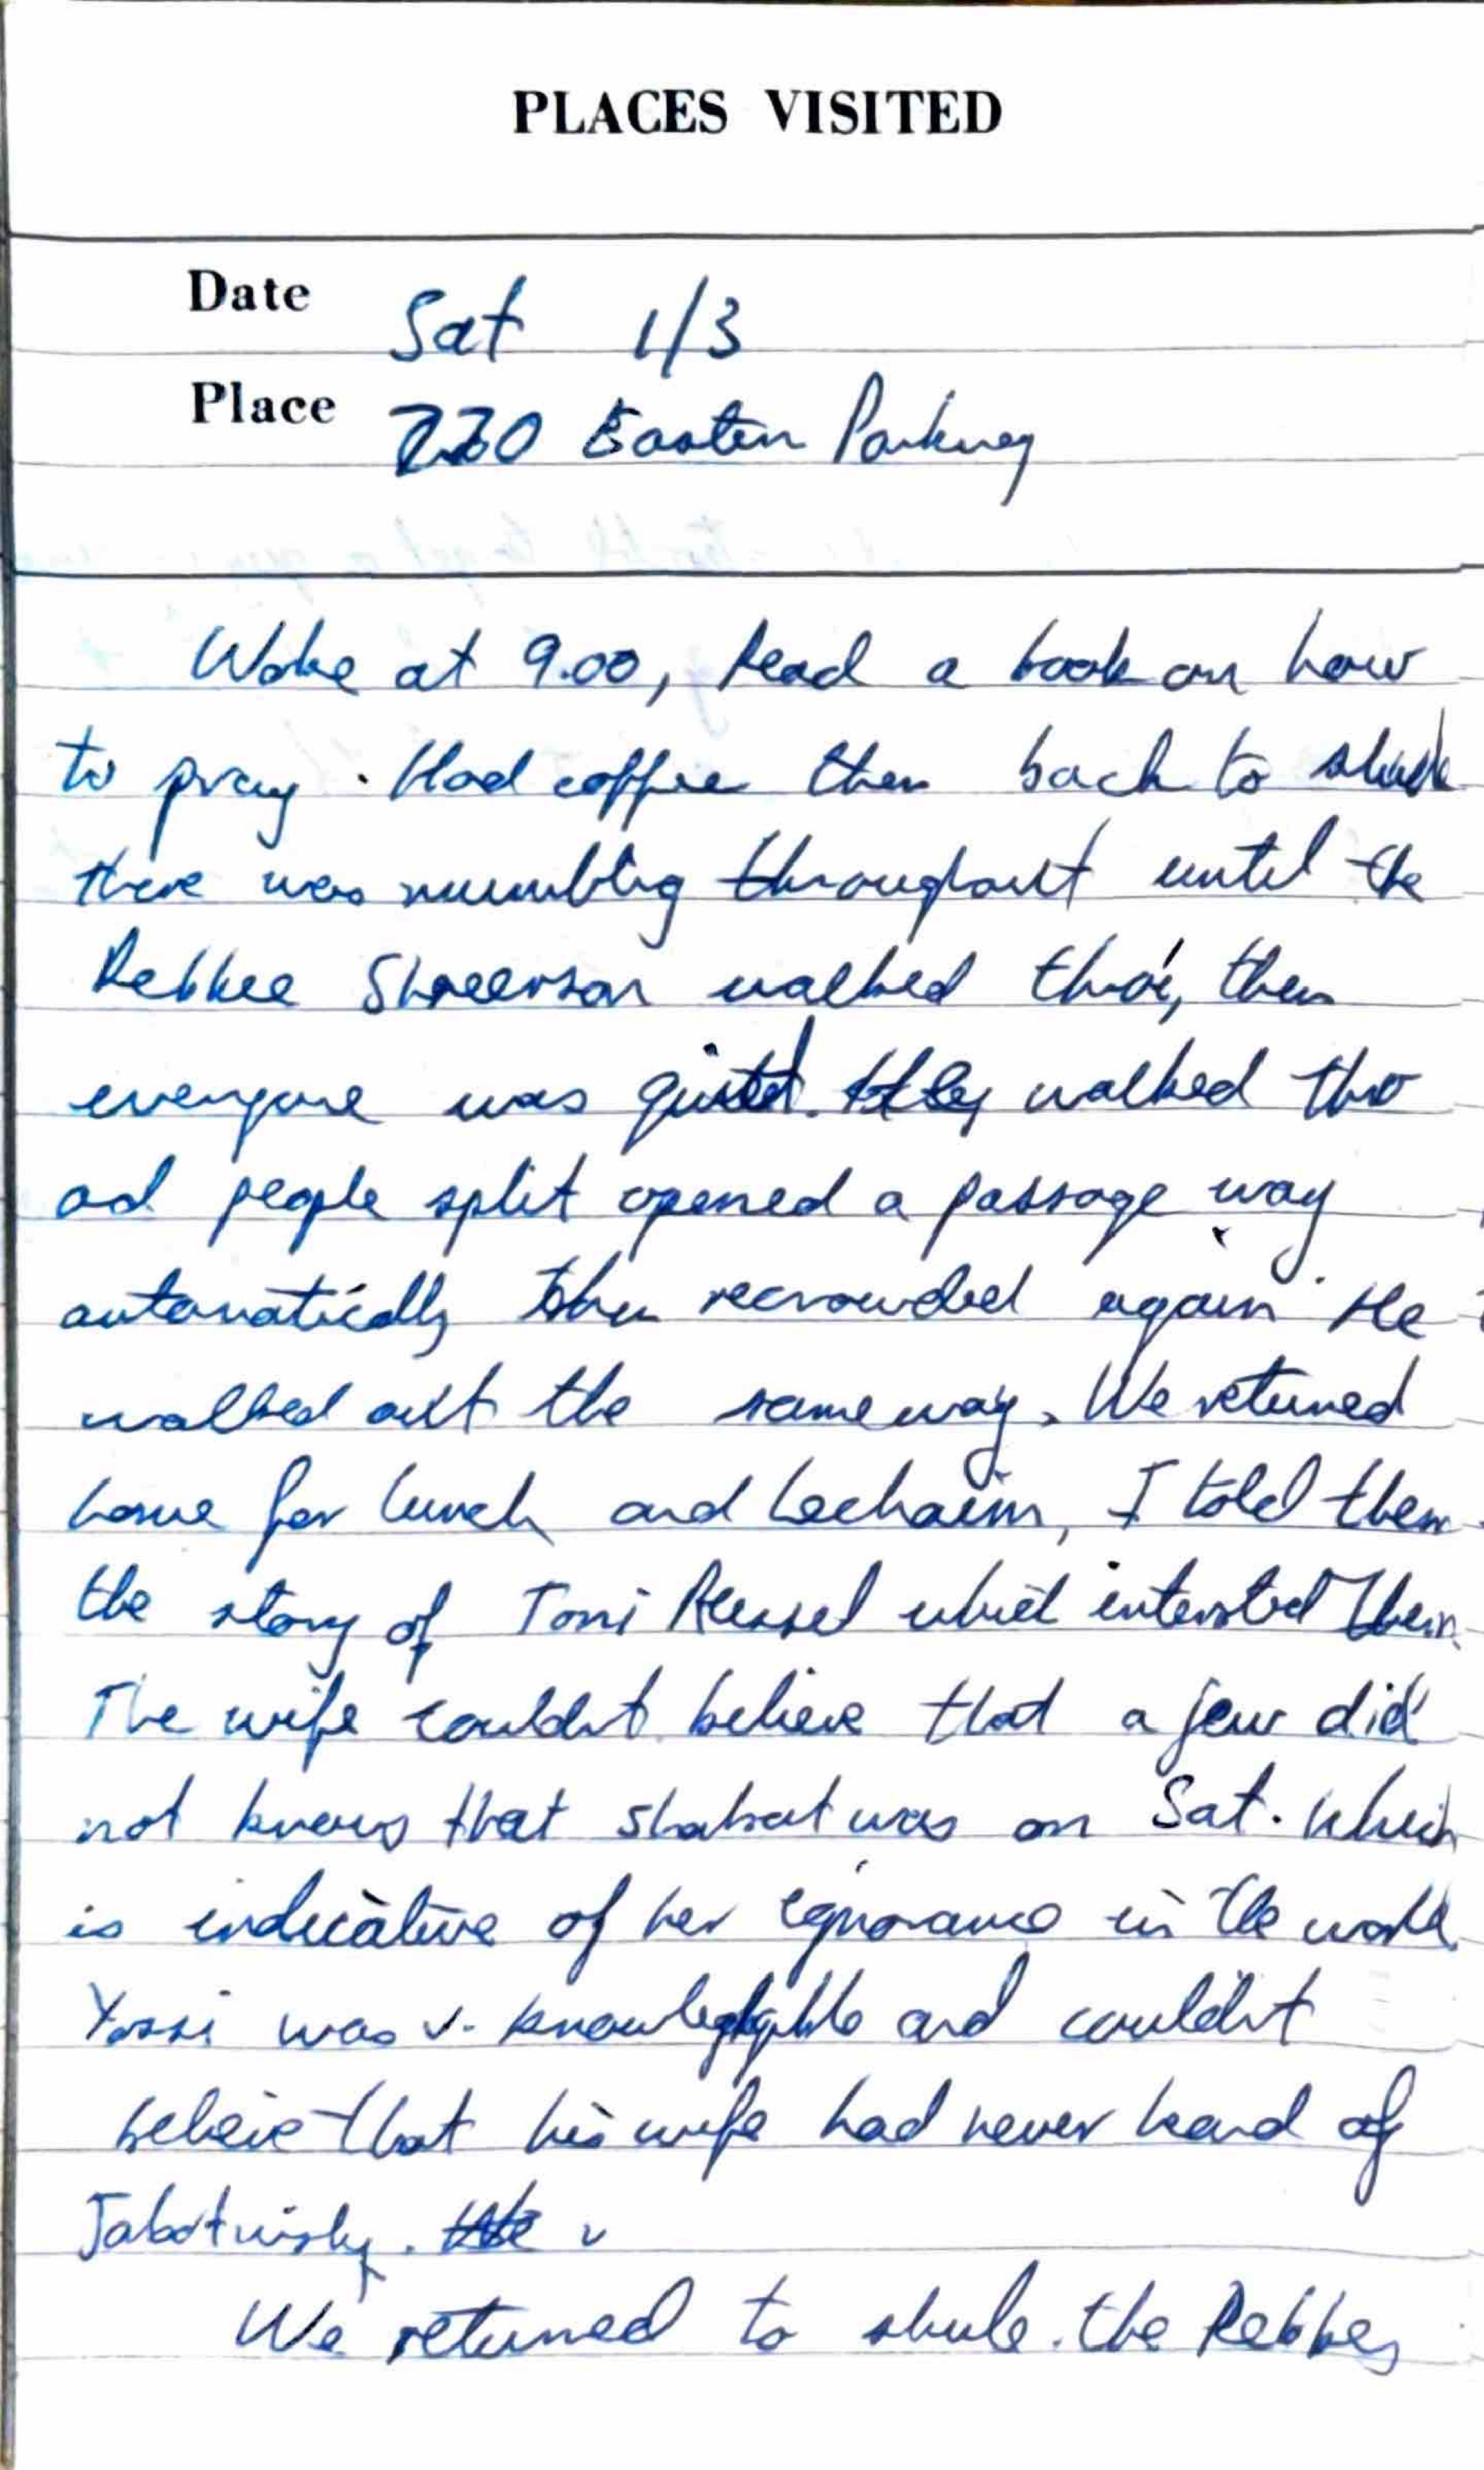 PLACES VISITED
Date Sat 1/3
Place 770 Eastern Parkway
Woke at 9.00, Read a book on how
to pray. Had coffee then back to shule
there was mumbling throughout until the
Rebbee walked thro', then
everyone was quiet. He walked thro
ad people split opened a passage way
automatically then recrowded again. He
walked out the same way. We returned
home for lunch and Lechaim, I told them
the story of Toni Russel which interested them.
The wife couldnt believe that a jew did
not know that shabat was on Sat. which
is indicative of her ignorance in the world.
Yossi was v. knowlegable and couldnt
believe that his wife had never heard of
Jabotinsky.
We returned to shule. the Rebbey